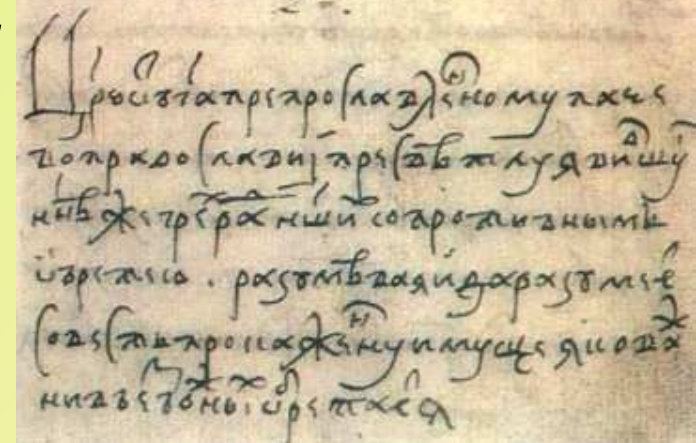 Црю ѿ б҃га препрославле(н)ному паче
во православии пресвѣтлу явившу
нн҃ѣ же грѣ(х) ра(ди) нши(х) сопротивнымъ
обретеся . разумѣваяи да разумѣе
совесть прокаже(н)ну имуще якова(ж)
ни въ безбожны(х) обретаеся